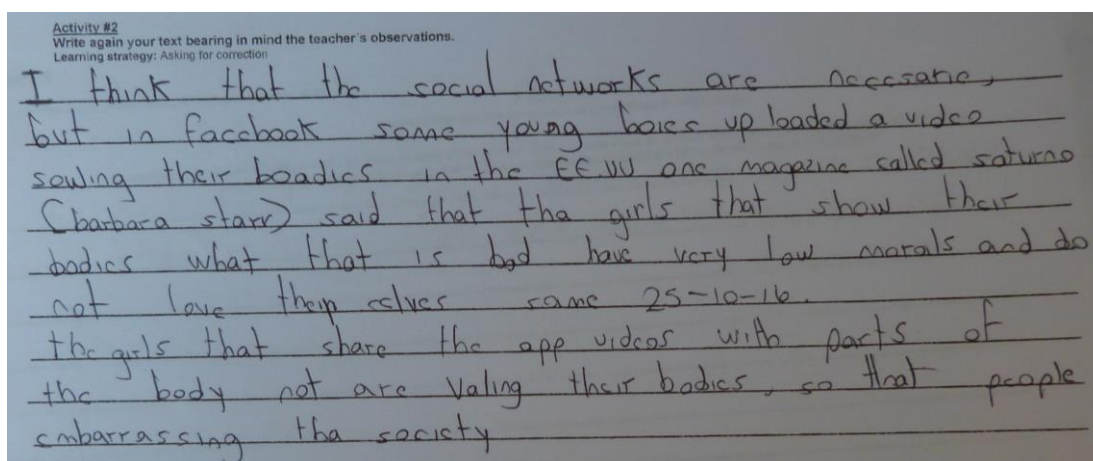 Activity #2
Write again your text bearing in mind the teacher´s observations.
Learning strategy: Asking for correction
I think that the social networks are neccsarie,
but in facebook some young boies up loaded a video
sowing their boadies in the EE.UU one magazine called saturno
(barbara starr) said that tha girls that show their
bodies what that is bad have very low morals and do
not love them selves same 25-10-16.
the girls that share the app videos with parts of
the body not are valing their bodies, so that people
embarrassing tha society